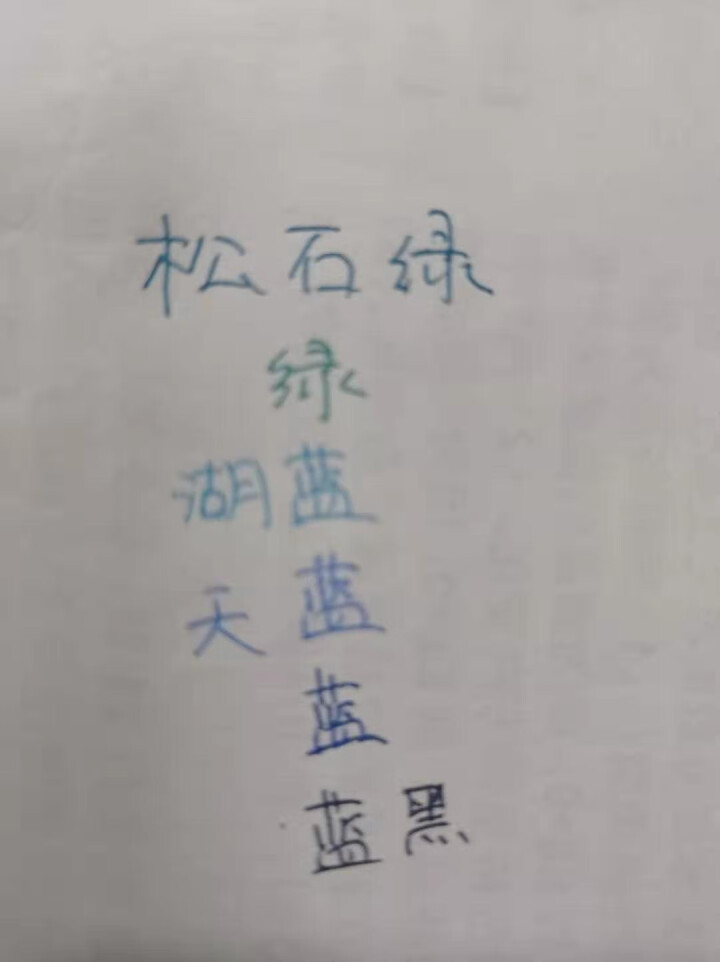 松石绿
绿
湖蓝
天蓝
蓝
蓝黑